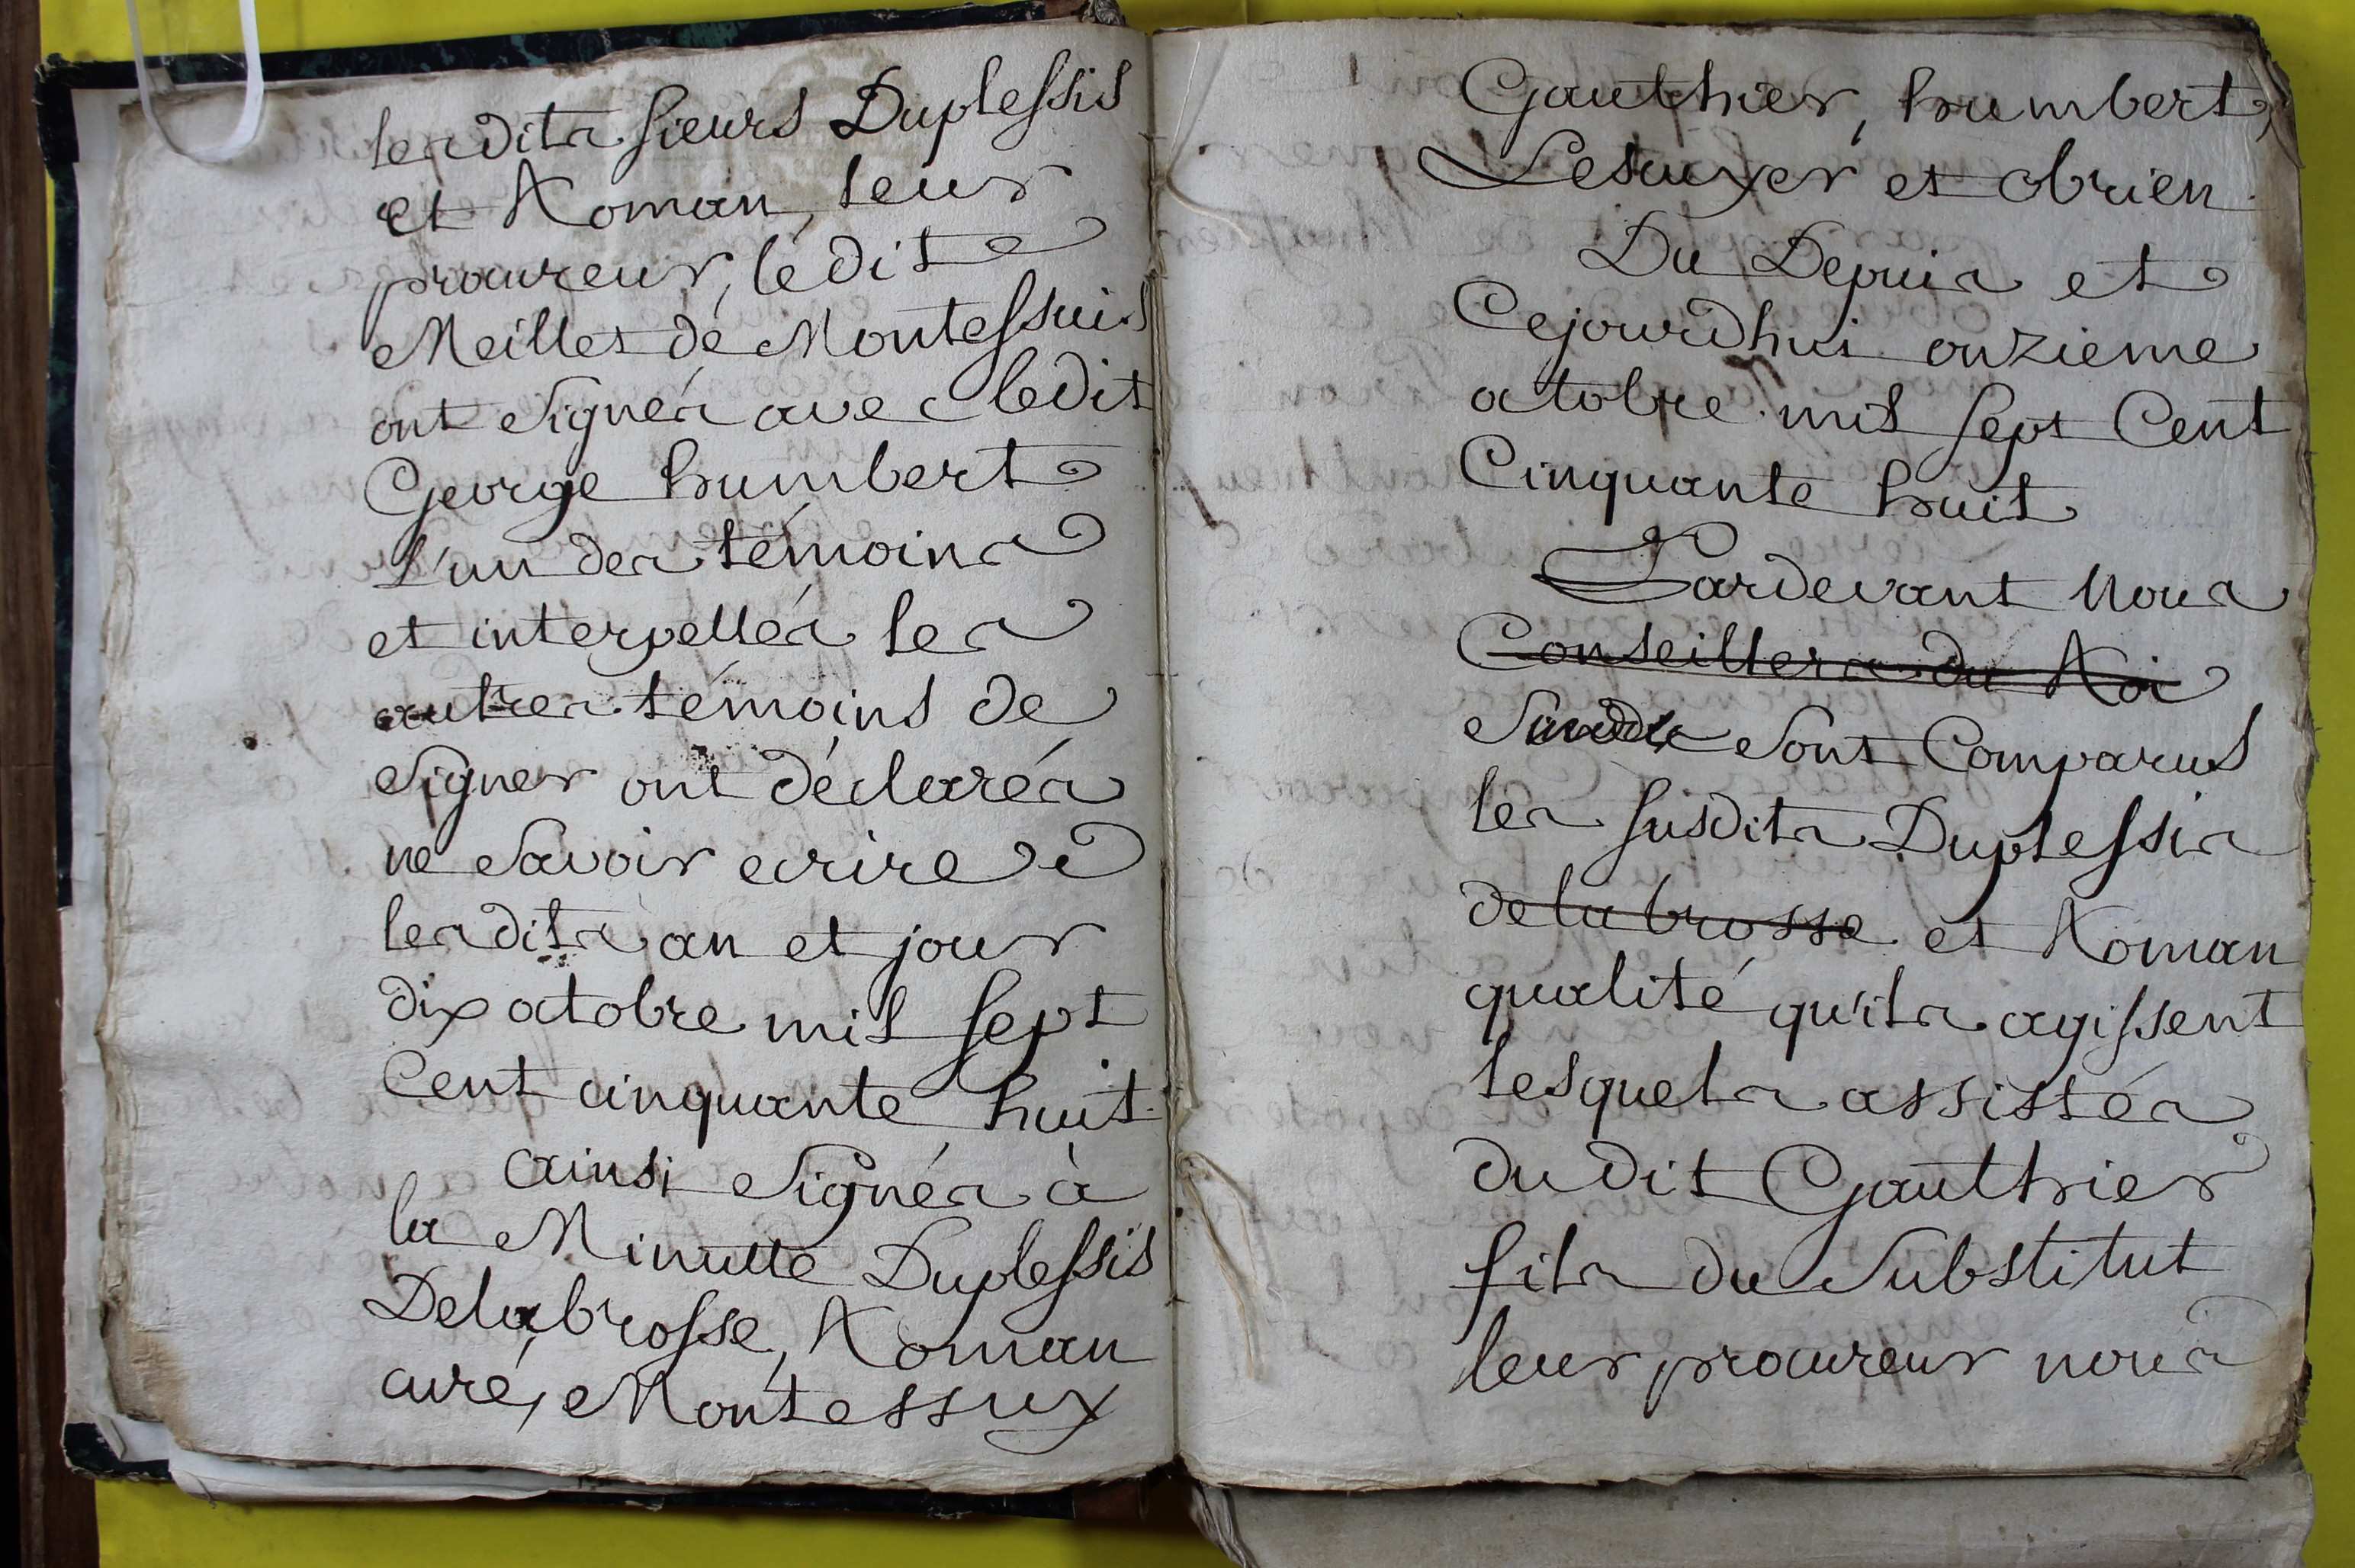 lesdits sieurs Duplessis
et Roman, leur
procureur, ledit
Meillet de Montessuis
ont signés avec ledit
George humbert
L'un des témoins
et interpellés les
autres témoins de
signer ont déclarés
ne savoir ecrire
lesdits an et jour
dix octobre mil sept
Cent cinquante huit.
ainsi signés à
la Minutte Duplessis
Delabrosse, Roman
curé, Montessux
Gauthier, humbert,
Lesuxer et obrien.
Du Depuis et
Cejourdhui onzieme
octobre mil sept Cent
Cinquante huit
Pardevant Nous
Conseillers du Roi
sont Comparus
les susdits Duplessis
delabrosse et Roman
qualité qu'ils agissent
lesquels assistés
du dit Gauthier
fils du substitut
leur procureur nous